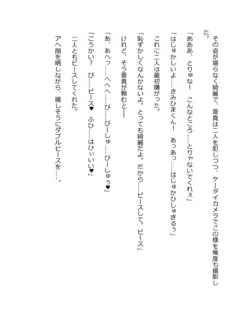 その姿が堪らなく綺麗で、蒼真は二人を犯しつつ、ケータイカメラでこの様を幾度も撮影した。
「あああ、とりゅな！　こんなところ……とりゃないでくれぇ」
「はじゅかしいよ……きみひまくん！　あっあっ……はしゅかひしゅぎるぅ」
これに二人は最初嫌がった。
「恥ずかしくなんかないよ。とっても綺麗だよ。だから……ピースして。ピース」
けれど、そう蒼真が頼むと――
「あ、あへっ……へへへ……びーしゅ……びーしゅぅ♥」
「こうかい？　ぴ……ピース♥　ふひ……はひぃいい♥」
二人ともピースしてくれた。
アヘ顔を晒しながら、嬉しそうにダブルピースを……。